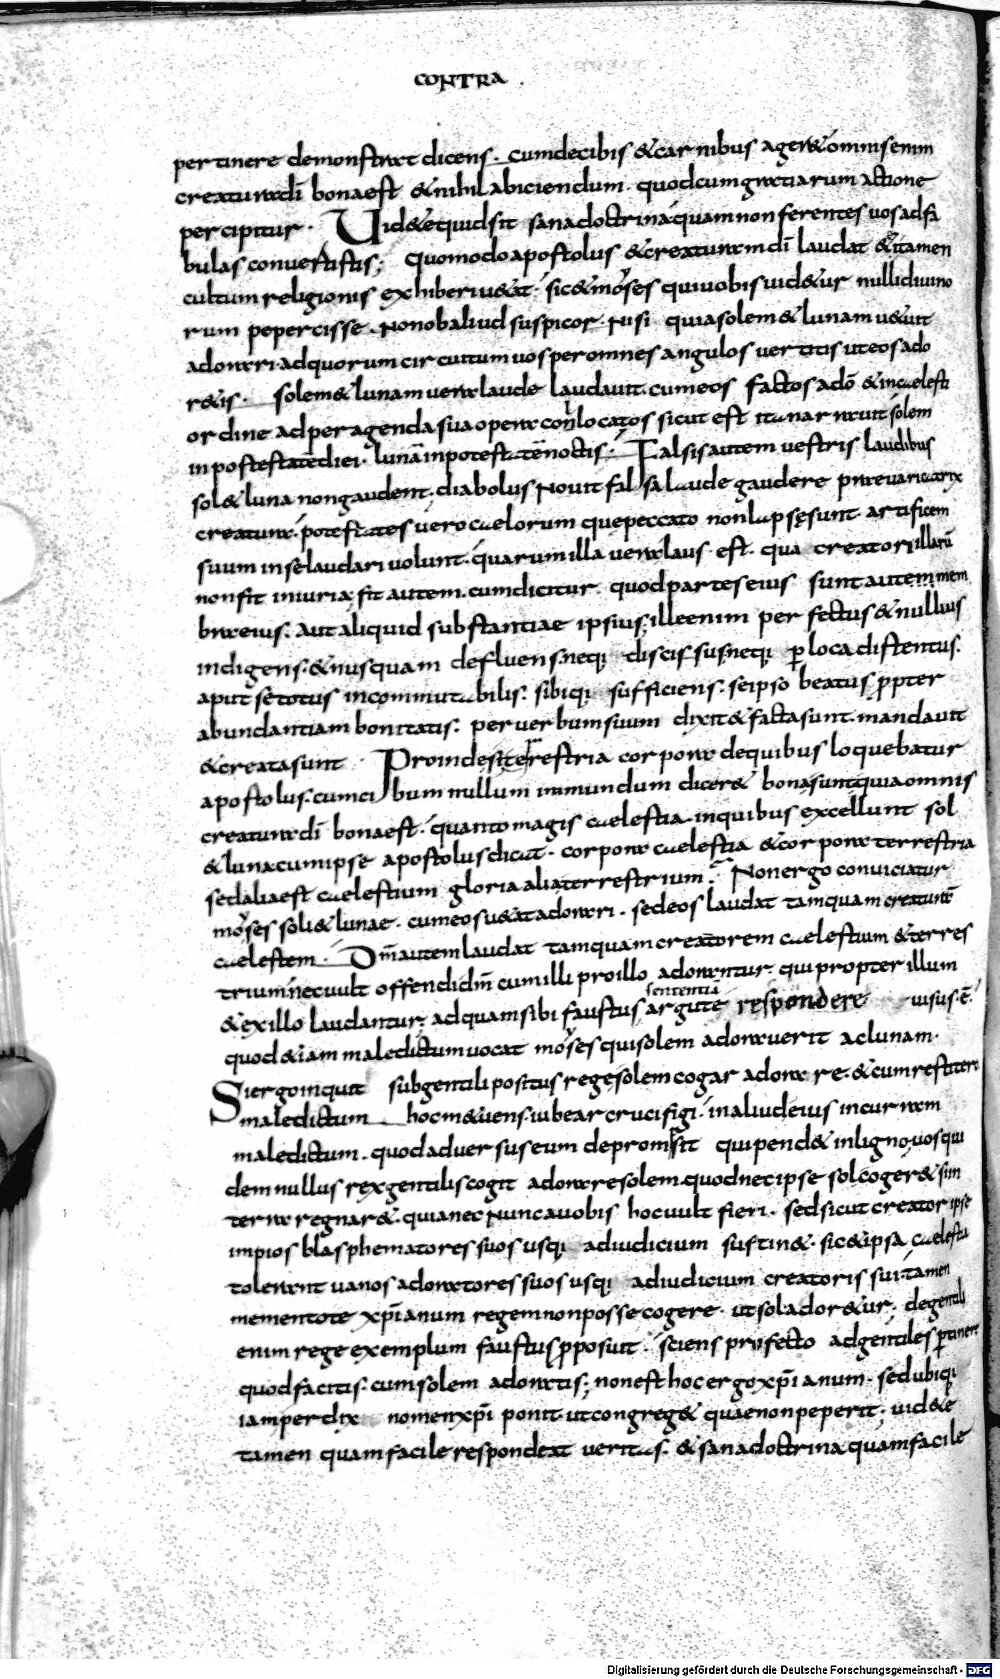 CONTRA
pertinere demonstraret dicens. cum de cibis & carnibus ager&. & omnis enim
creatura dī bona est & nihil abiciendum. quod cum gratiarum actione
percipitur. Uid&e quid sit sana doctrina quam non ferentes uos ad fa
bulas conuertistis; quomodo apostolus & creaturam dī laudat & tamen
cultum religionis exhiberi u&at. sic & moyses qui uobis uid&ur nulli diuino
rum pepercisse. Non ob aliud suspicor. Nisi quia solem & lunam u&uit
adorari. ad quorum circuitum uos per omnes angulos uertitis ut eos ado
r&is. solem & lunam uera laude laudauit. cum eos factos a dō & in caelesti
ordine ad peragenda sua opera conlocatos sicut est ita narrauit solem
in postestatē diei. lunā in potestatē noctis. Falsis autem uestris laudibus
sol & luna non gaudent; diabolus Nouit falsa laude gaudere praeuaricatrix
creatura. potestates uero caelorum que peccato non lapsę sunt. artificem
suum in se laudari uolunt. quarum illa uera laus est. qua creatori illarū
non fit iniuria. fit autem. cum dicitur quod partes eius sunt autem mem
bra eius. aut aliquid substantiae ipsius. ille enim perfectus & nullius
indigens. & nusquam defluens. neq; discissus. neq; p loca distentus.
aput se totus incommutabilis. sibiq; sufficiens. seipso beatus ppter
abundantiam bonitatis. per uerbum suum dixit & facta sunt. mandauit
& creata sunt Proinde si terrestria corpora de quibus loquebatur
apostolus. cum cibum nullum inmundum dicer& bona sunt quia omnis
creatura dī bona est. quanto magis caelestia. in quibus excellunt sol
& luna cum ipse apostolus dicat. corpora caelestia & corpora terrestria
sed alia est caelestium gloria alia terrestrium. Non ergo conuiciatur
moyses soli & lunae. cum eos u&at adorari. sed eos laudat tamquam creaturā
caelestem. Dm̄ autem laudat tamquam creatorem caelestium & terres
trium. nec uult offendi dm̄ cum illi pro illo adorantur qui propter illum
& ex illo laudantur; ad quam sibi faustus argute sententiā respondere uisus. ē.
quod & iam maledictum uocat moyses qui solem adorauerit ac lunam.
Si ergo inquit sub gentili positus rege solem cogar adorare. & cum restitero
maledictum hoc m&uens. iubear crucifigi. in aliud eius incurram
maledictum. quod aduersus eum depromsit qui pend& in ligno. uos qui
dem nullus rex gentilis cogit adorare solem. quod nec ipse sol coger& si in
terra regnar&. quia nec Nunc a uobis hoc uult fieri. sed sicut creator ipse
impios blasphematores suos usq; ad iudicium sustin&. sic & ipsa caelestia
tolerant uanos adoratores suos usq; ad iudicium creatoris sui. tamen
mementote xp̄ianum regem non posse cogere. ut sol ador&ur. de gentili
enim rege exemplum faustus pposuit. sciens profecto ad gentiles ptinere
quod facitis. cum solem adoratis; non est hoc ergo xp̄ianum. sed ubiq;
iam perdix nomen xp̄i ponit ut congreg& quae non peperit. uid&e
tamen quam facile respondeat ueritas. & sana doctrina quam facile
Digitalisierung gefördert durch die Deutsche Forschungsgemeinschaft - DFG